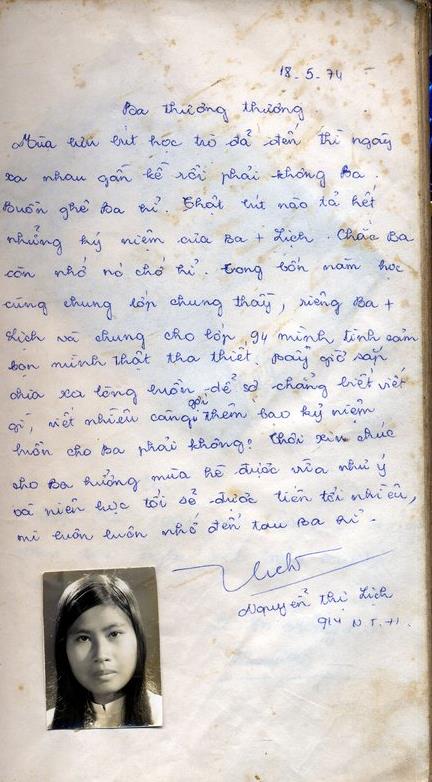 18-5-74
Ba thương thương
Mùa lưu bút học trò đã đến thì ngày
xa nhau gần kề rồi phải không Ba.
Buồn ghê Ba hỉ. Bhút nào tả hết
những kỷ niệm của Ba + Lịch. Chắc Ba
còn nhớ nó chớ hỉ. Trong bốn năm học
cùng chung lớp chung thầy, riêng Ba +
Lịch và chung cho lớp 94 mình tình cảm
bạn mình thật tha thiết. Bây giờ sắp
chia xa lòng buồn dể sợ chẳng biết viết
gì, viết nhiều càng gợi thêm bao kỷ niệm
buồn cho Ba phải không! Thôi xin chúc
cho Ba hưởng mùa hè được vừa như ý
và niên học tới sẽ được tiến tới nhiều,
mi luôn luôn nhớ đến tau Ba hỉ.
Lịch
Nguyễn Thị Lịch
914 N.T.H.